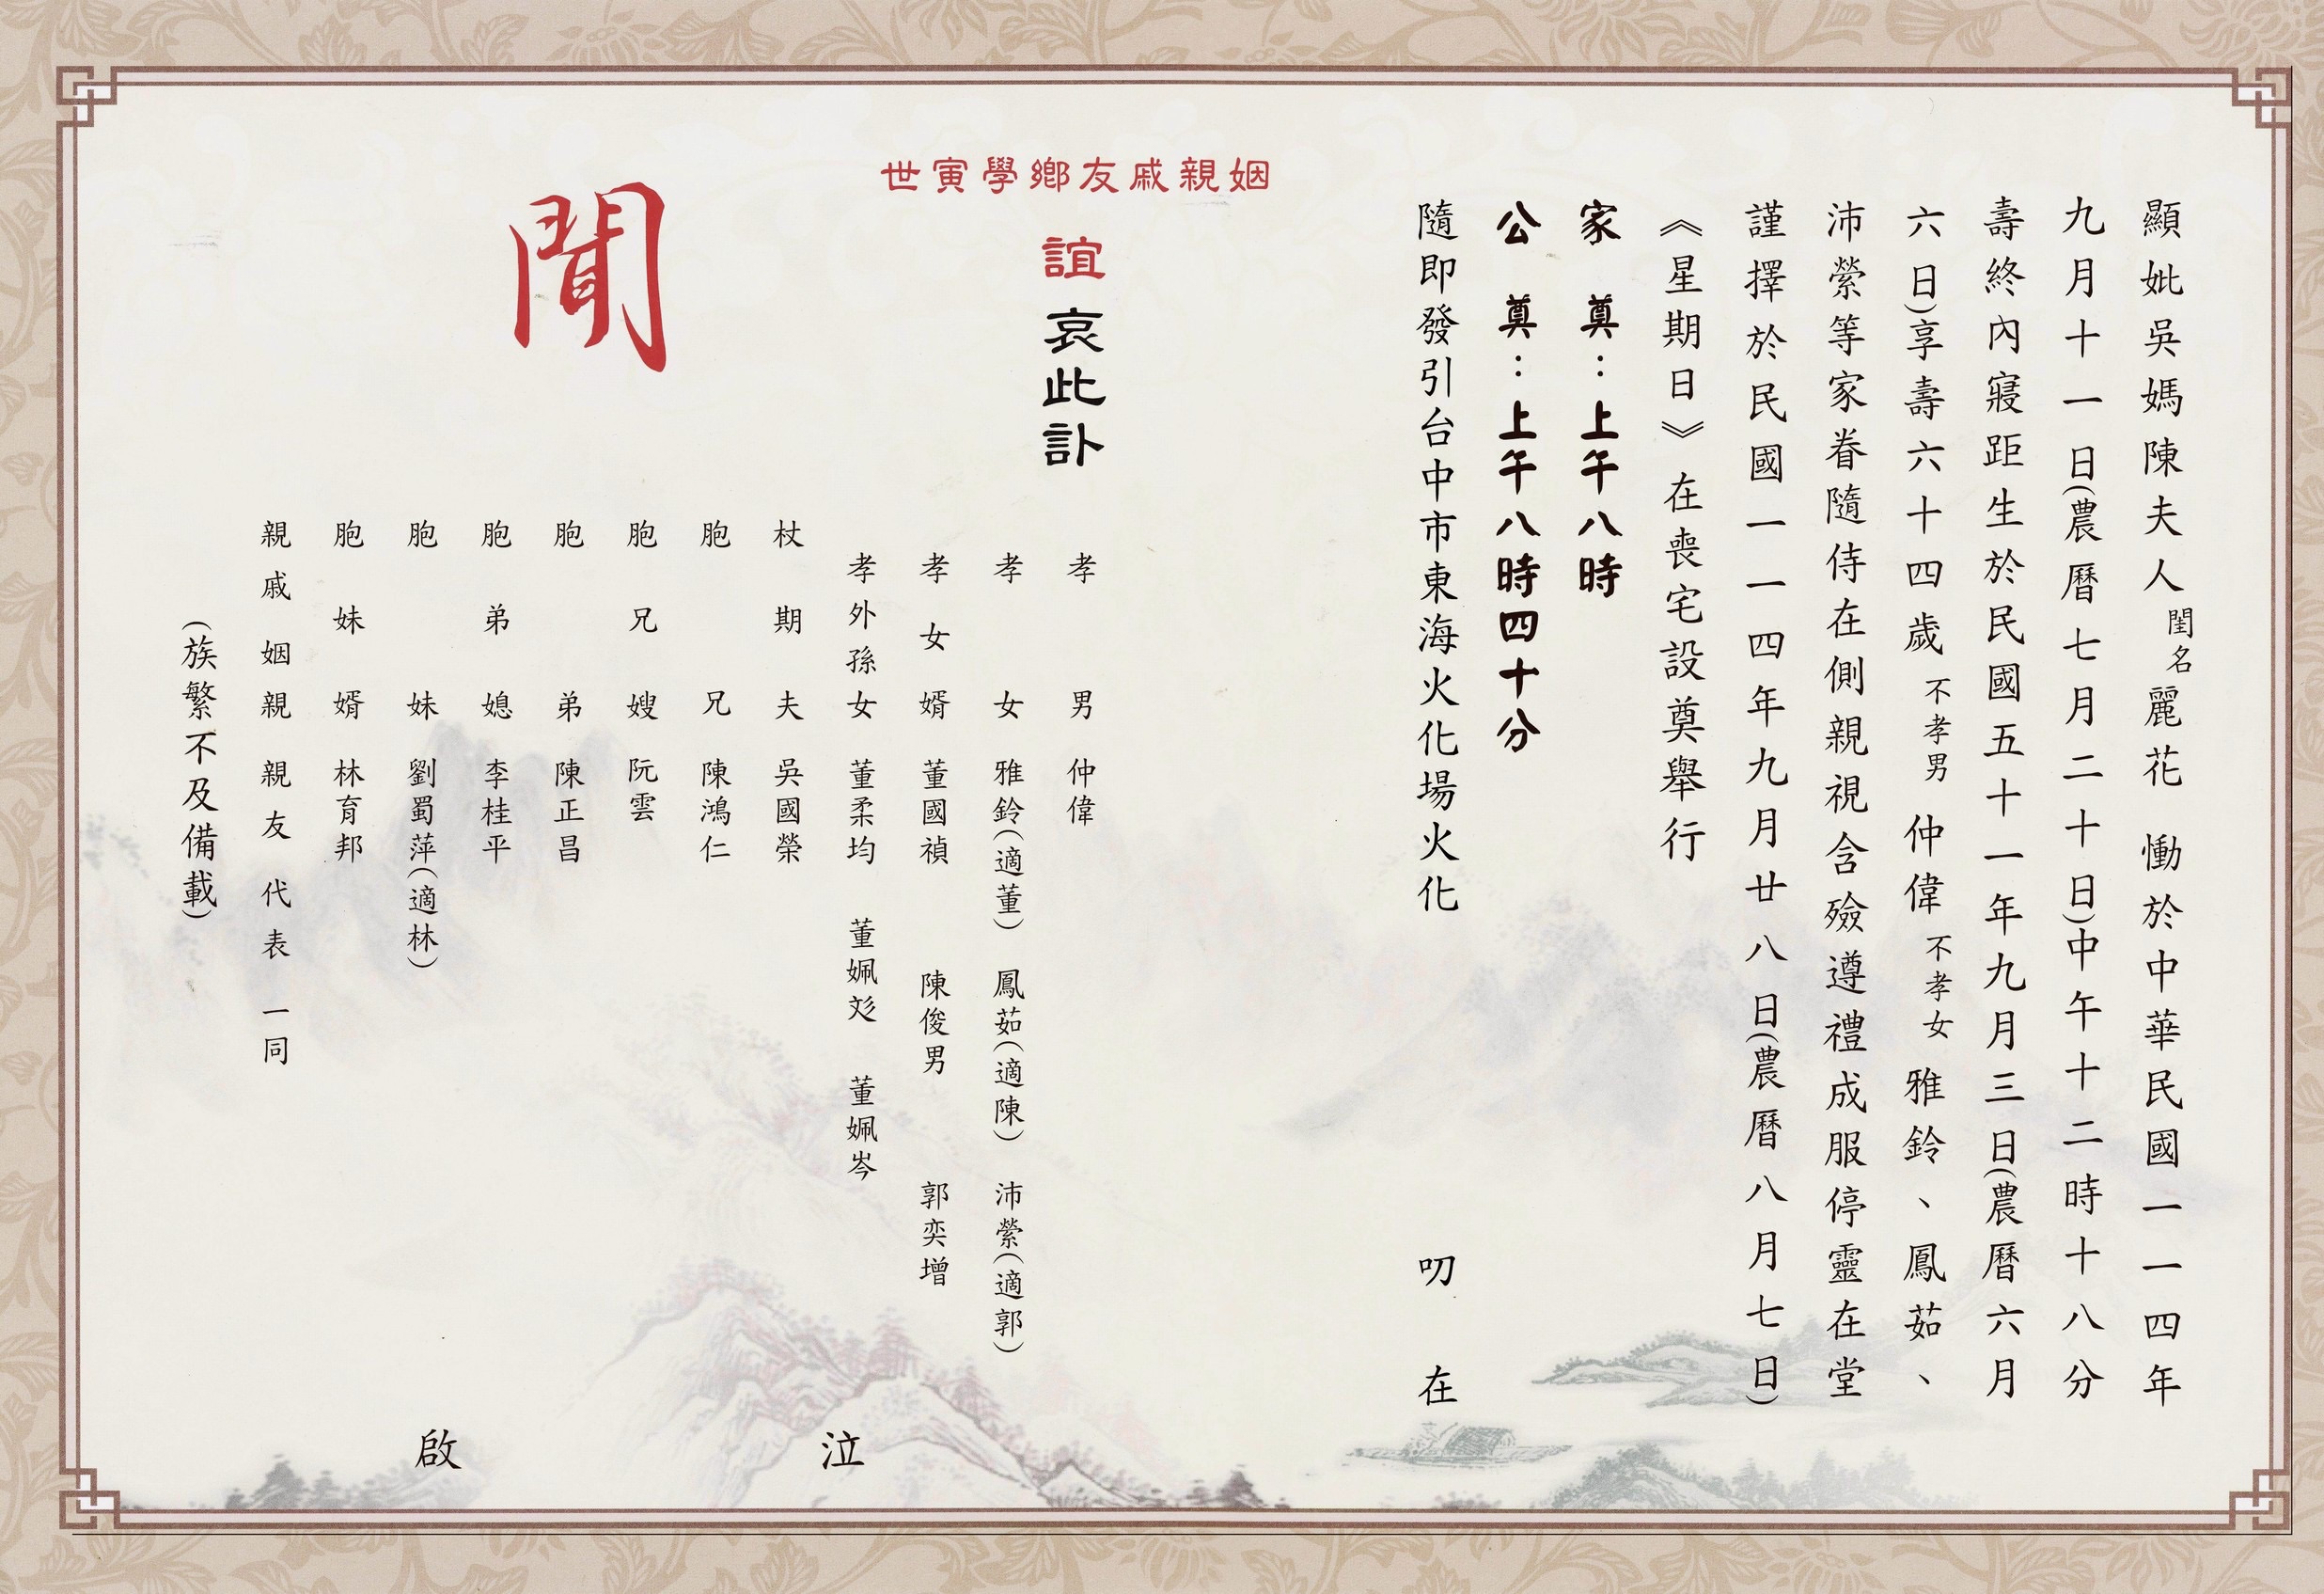 顯妣吳媽陳夫人閨名麗花 慟於中華民國一一四年
九月十一日(農曆七月二十日)中午十二時十八分
壽終內寢距生於民國五十一年九月三日(農曆六月
六日)享壽六十四歲不孝男仲偉不孝女雅鈴、鳳茹、
沛縈等家眷隨侍在側親視含殮遵禮成服停靈在堂
謹擇於民國一一四年九月廿八日(農曆八月七日)
《星期日》在喪宅設奠舉行
家 奠：上午八時
公 奠：上午八時四十分
隨即發引台中市東海火化場火化 叨 在
姻親戚友鄉學寅世
誼哀此訃
聞
孝 男 仲偉
孝 女 雅鈴(適董) 鳳茹(適陳) 沛縈(適郭)
孝女婿 董國禎 陳俊男 郭奕增
孝外孫女 董柔均 董姵彣 董姵岑
杖期夫 吳國榮
胞 兄 陳鴻仁
胞兄嫂 阮雲
胞 弟 陳正昌
胞弟媳 李桂平
胞 妹 劉蜀萍(適林)
胞妹婿 林育邦
親戚姻親親友代表 一同
(族繁不及備載)
泣 啟